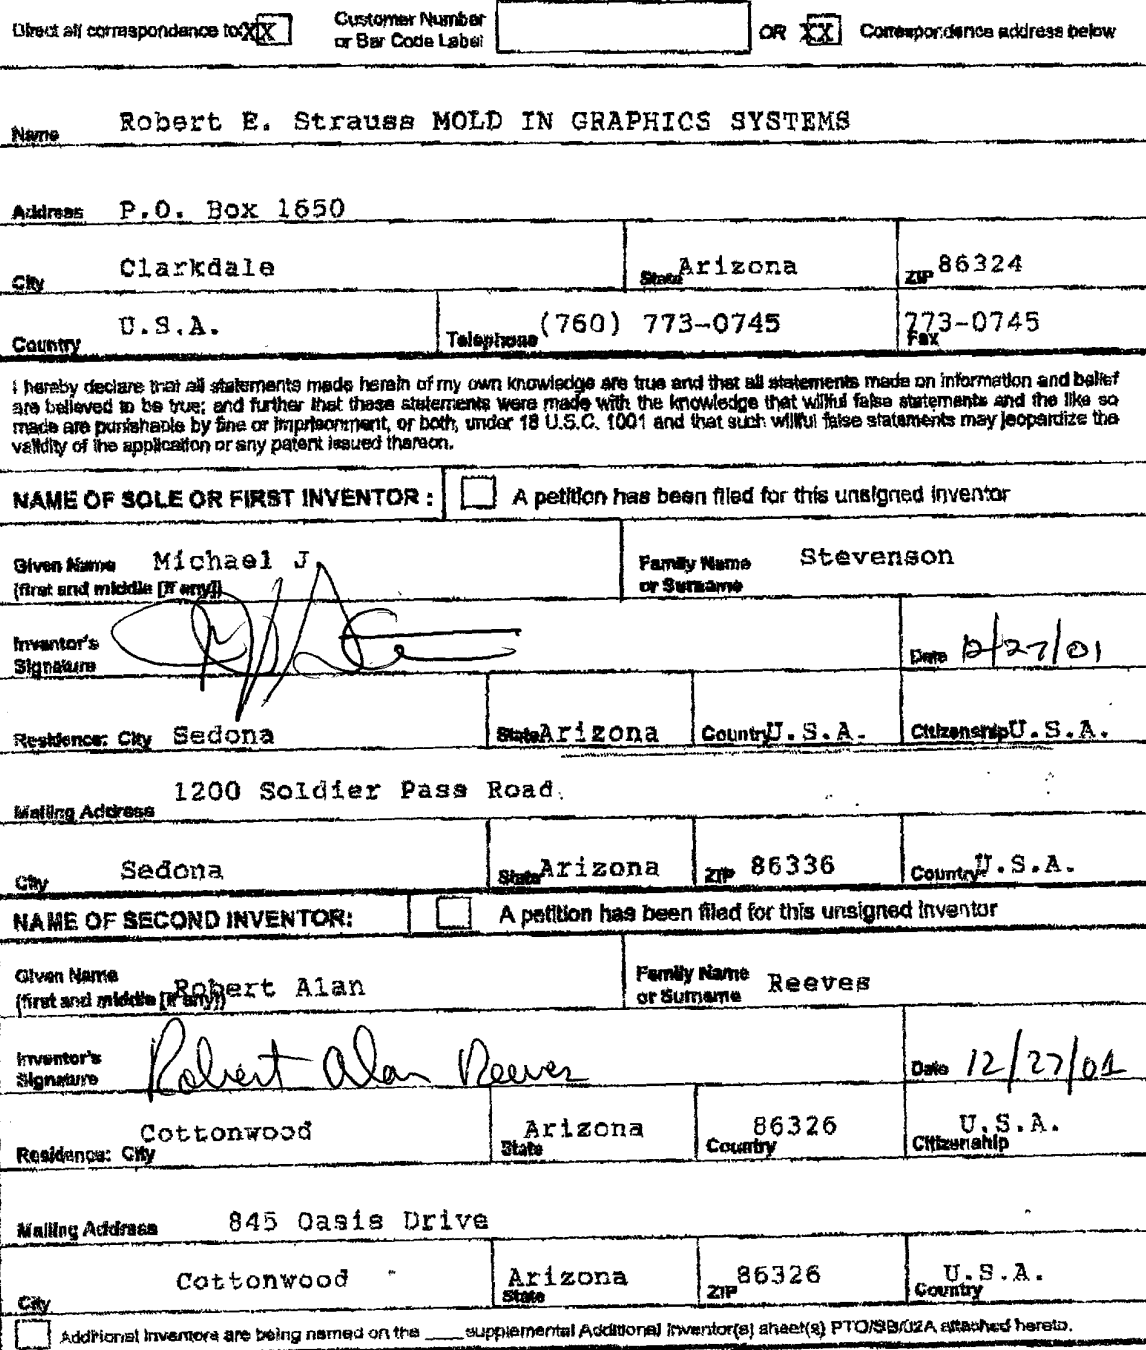 Direct all correspondence to: XX Customer Number or Bar Code Label OR XX Correspondence address below
Name Robert E. Strauss MOLD IN GRAPHICS SYSTEMS
Address P.O. Box 1650
City Clarkdale State Arizona ZIP 86324
Country U.S.A. Telephone (760) 773-0745 Fax 773-0745
I hereby declare that all statements made herein of my own knowledge are true and that all statements made on information and belief
are believed to be true; and further that these statements were made with the knowledge that willful false statements and the like so
made are punishable by fine or imprisonment, or both, under 18 U.S.C. 1001 and that such willful false statements may jeopardize the
validity of the application or any patent issued thereon.
NAME OF SOLE OR FIRST INVENTOR : A petition has been filed for this unsigned inventor
Given Name (first and middle [if any]) Michael J. Family Name or Surname Stevenson
Inventor's Signature Date 12/27/01
Residence: City Sedona State Arizona Country U.S.A. Citizenship U.S.A.
Mailing Address 1200 Soldier Pass Road
City Sedona State Arizona ZIP 86336 Country U.S.A.
NAME OF SECOND INVENTOR: A petition has been filed for this unsigned inventor
Given Name (first and middle [if any]) Robert Alan Family Name or Surname Reeves
Inventor's Signature Robert Alan Reeves Date 12/27/01
Residence: City Cottonwood State Arizona Country 86326 Citizenship U.S.A.
Mailing Address 845 Oasis Drive
City Cottonwood State Arizona ZIP 86326 Country U.S.A.
Additional inventors are being named on the ____ supplemental Additional Inventor(s) sheet(s) PTO/SB/02A attached hereto.